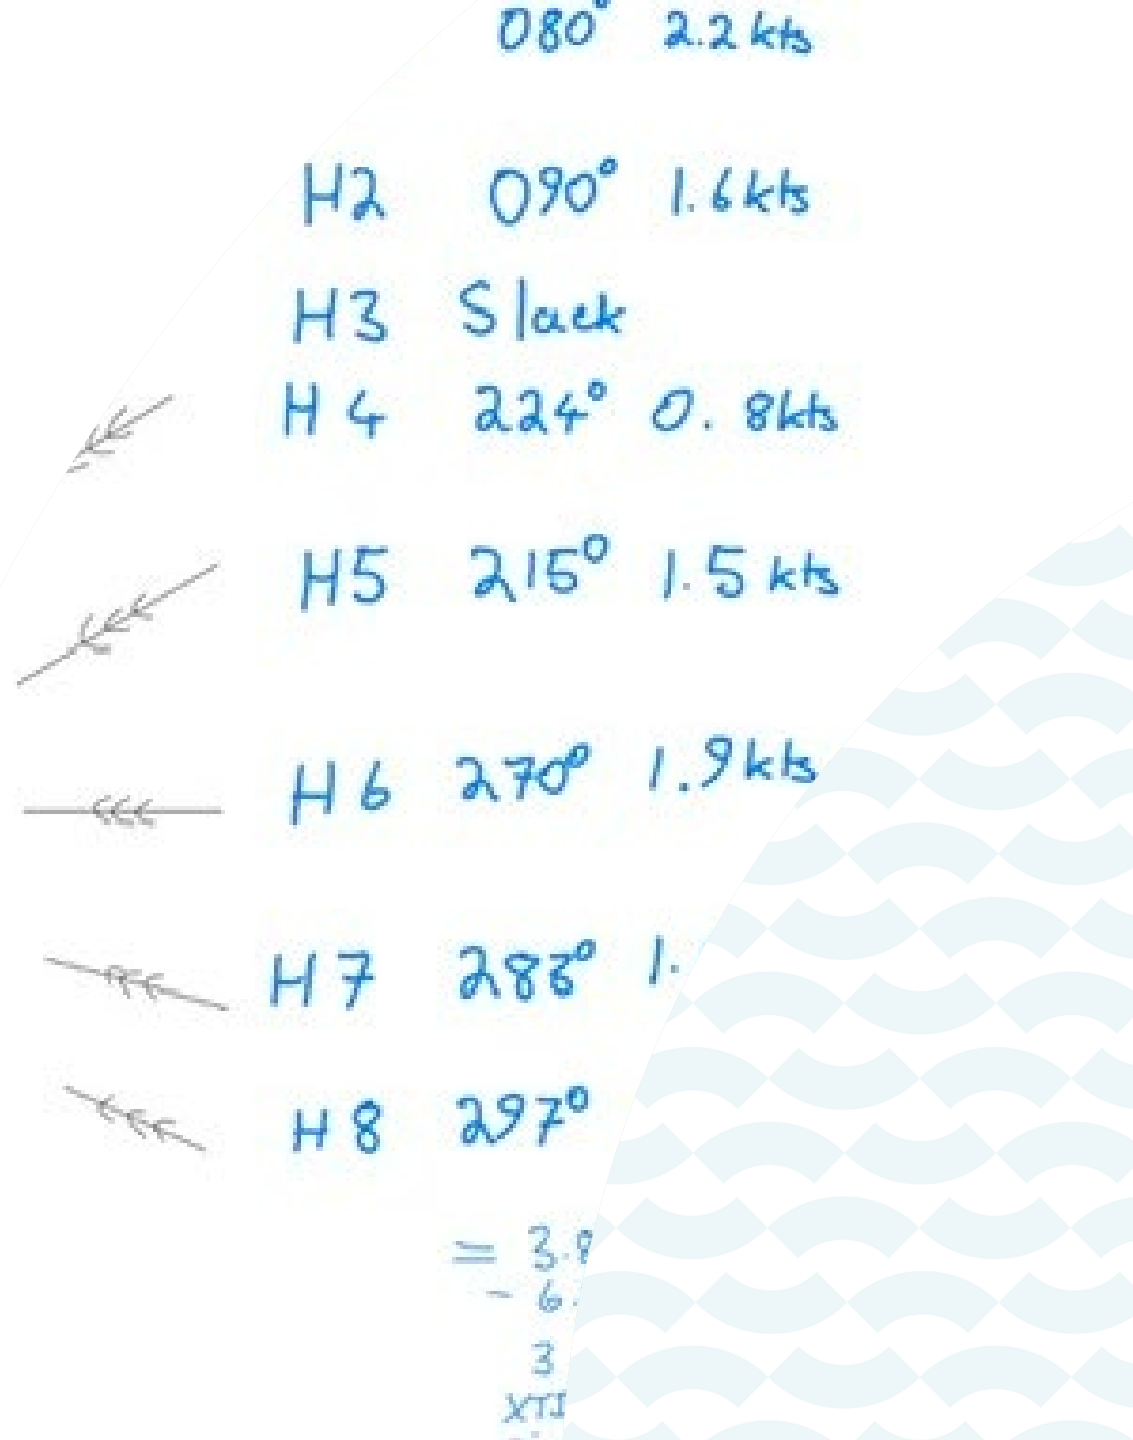 080° 2.2 kts
H2 090° 1.6 kts
H3 Slack
H4 224° 0.8 kts
H5 215° 1.5 kts
H6 270° 1.9 kts
H7 283° 1.
H8 297°
= 3.8
- 6.
3